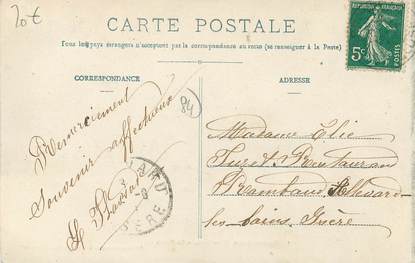 20€
CARTE POSTALE
Tous les pays étrangers n'acceptent pas la correspondance au recto (se renseigner à la Poste)
REPUBLIQUE FRANÇAISE
5c
POSTES
CORRESPONDANCE
ADRESSE
84
Remerciement
Souvenir affectueux
ISERE
Madame Elie
Restaurant
Rambaud Allevard-
les-bains Isère